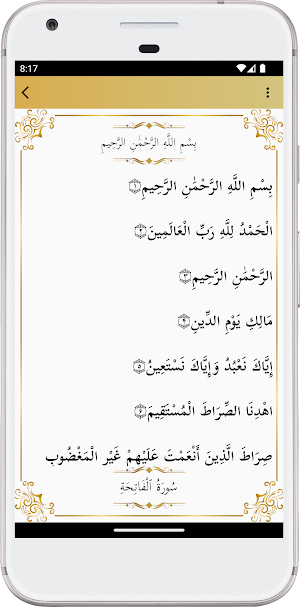 8:17
بِسْمِ اللَّهِ الرَّحْمَٰنِ الرَّحِيمِ
بِسْمِ اللَّهِ الرَّحْمَٰنِ الرَّحِيمِ ١
الْحَمْدُ لِلَّهِ رَبِّ الْعَالَمِينَ ٢
الرَّحْمَٰنِ الرَّحِيمِ ٣
مَالِكِ يَوْمِ الدِّينِ ٤
إِيَّاكَ نَعْبُدُ وَإِيَّاكَ نَسْتَعِينُ ٥
اهْدِنَا الصِّرَاطَ الْمُسْتَقِيمَ ٦
صِرَاطَ الَّذِينَ أَنْعَمْتَ عَلَيْهِمْ غَيْرِ الْمَغْضُوبِ
سُورَةُ ٱلْفَاتِحَةِ